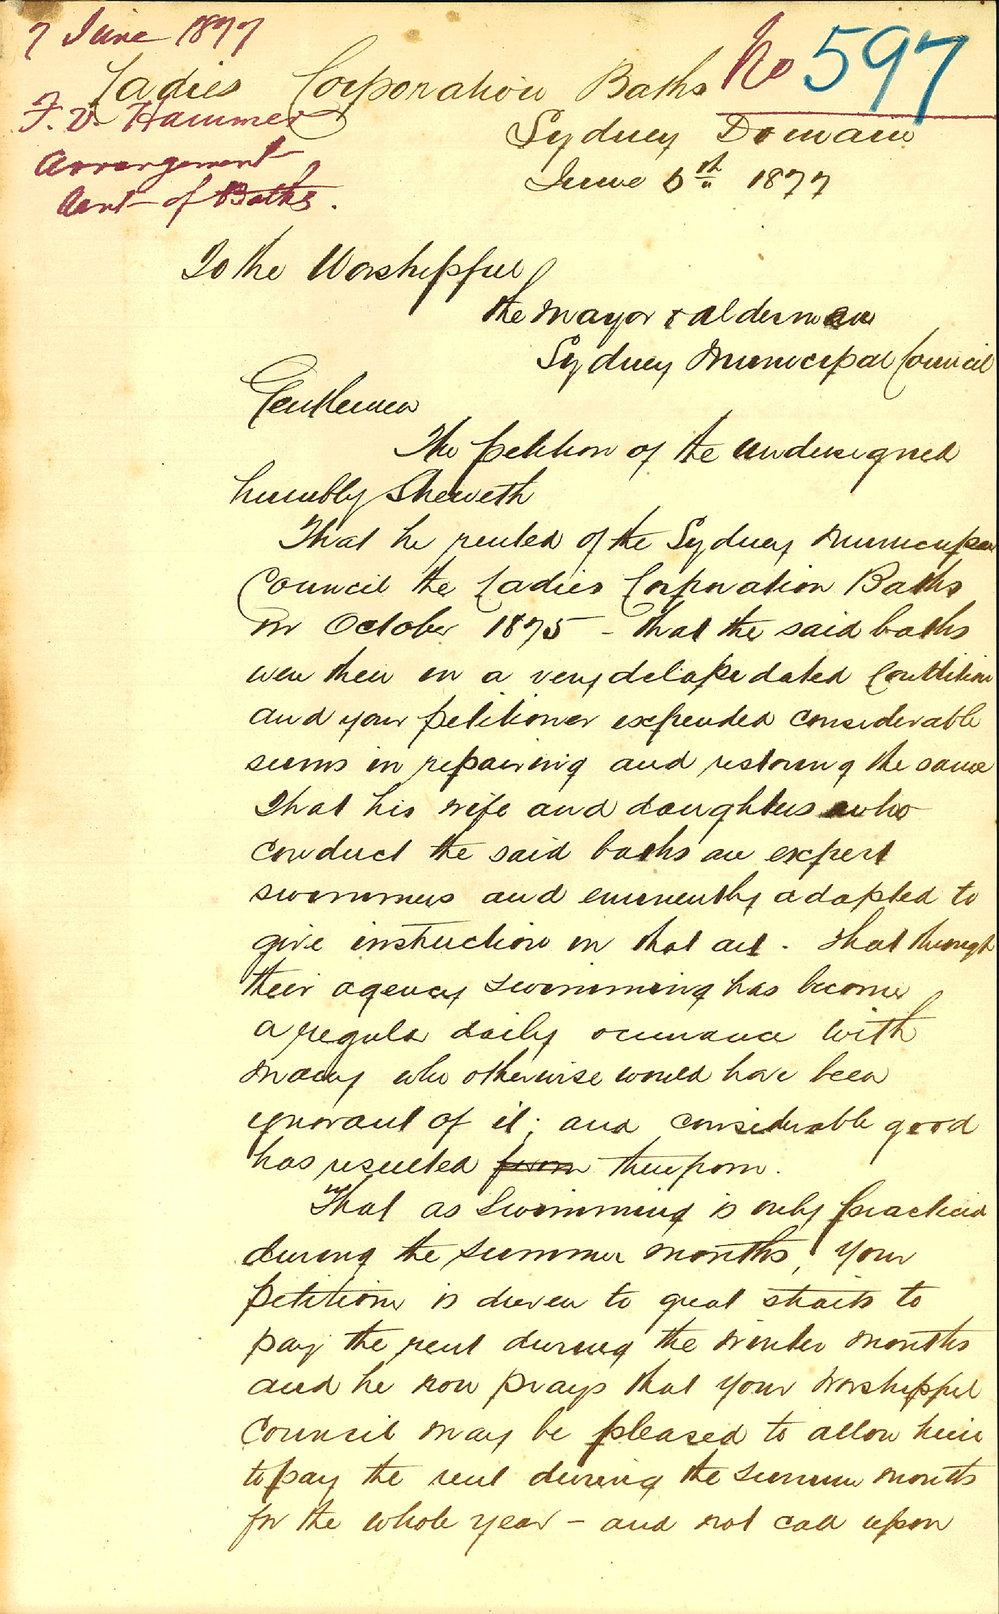 7 June 1877
No 597
Ladies Corporation Baths
F. D. Hammer
Sydney Domain
Arrangement
June 6th 1877
Rent of Baths.
To the Worshipful
the Mayor & Aldermen
Sydney Municipal Council
Gentlemen
The petition of the undersigned
humbly Sheweth
That he rented of the Sydney Municipal
Council the Ladies Corporation Baths
in October 1875 - that the said baths
were then in a very delapedated Condition
and your petitioner expended considerable
sums in repairing and restoring the same
That his wife and daughters who
conduct the said baths are expert
swimmers and eminently adapted to
give instruction in that art. That through
their agency swimming has become
a regular daily occurance with
many who otherwise would have been
ignorant of it; and considerable good
has resulted from therefrom.
That as Swimming is only practised
during the summer months, Your
petitioner is driven to great straits to
pay the rent during the winter months
and he now prays that your Worshipful
Council may be pleased to allow him
to pay the rent during the summer months
for the whole year - and not call upon